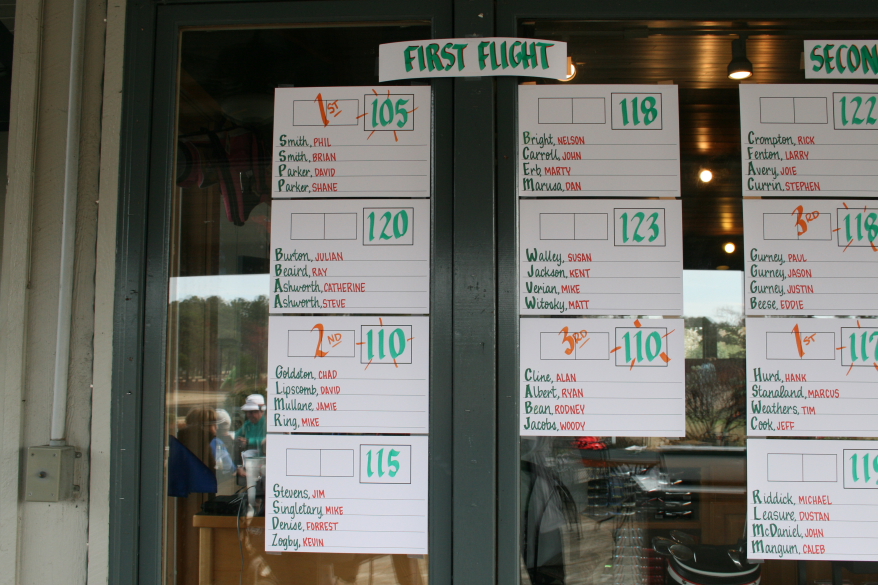 FIRST FLIGHT
1ST 105
Smith, PHIL
Smith, BRIAN
Parker, DAVID
Parker, SHANE
120
Burton, JULIAN
Beaird, RAY
Ashworth, CATHERINE
Ashworth, STEVE
2ND 110
Goldston, CHAD
Lipscomb, DAVID
Mullane, JAMIE
Ring, MIKE
115
Stevens, JIM
Singletary, MIKE
Denise, FORREST
Zogby, KEVIN
118
Bright, NELSON
Carroll, JOHN
Erb, MARTY
Marusa, DAN
123
Walley, SUSAN
Jackson, KENT
Verian, MIKE
Witosky, MATT
3RD 110
Cline, ALAN
Albert, RYAN
Bean, RODNEY
Jacobs, WOODY
SECON
122
Crompton, RICK
Fenton, LARRY
Avery, JOIE
Currin, STEPHEN
3RD 118
Gurney, PAUL
Gurney, JASON
Gurney, JUSTIN
Beese, EDDIE
1ST 117
Hurd, HANK
Stanaland, MARCUS
Weathers, TIM
Cook, JEFF
119
Riddick, MICHAEL
Leasure, DUSTAN
McDaniel, JOHN
Mangum, CALEB